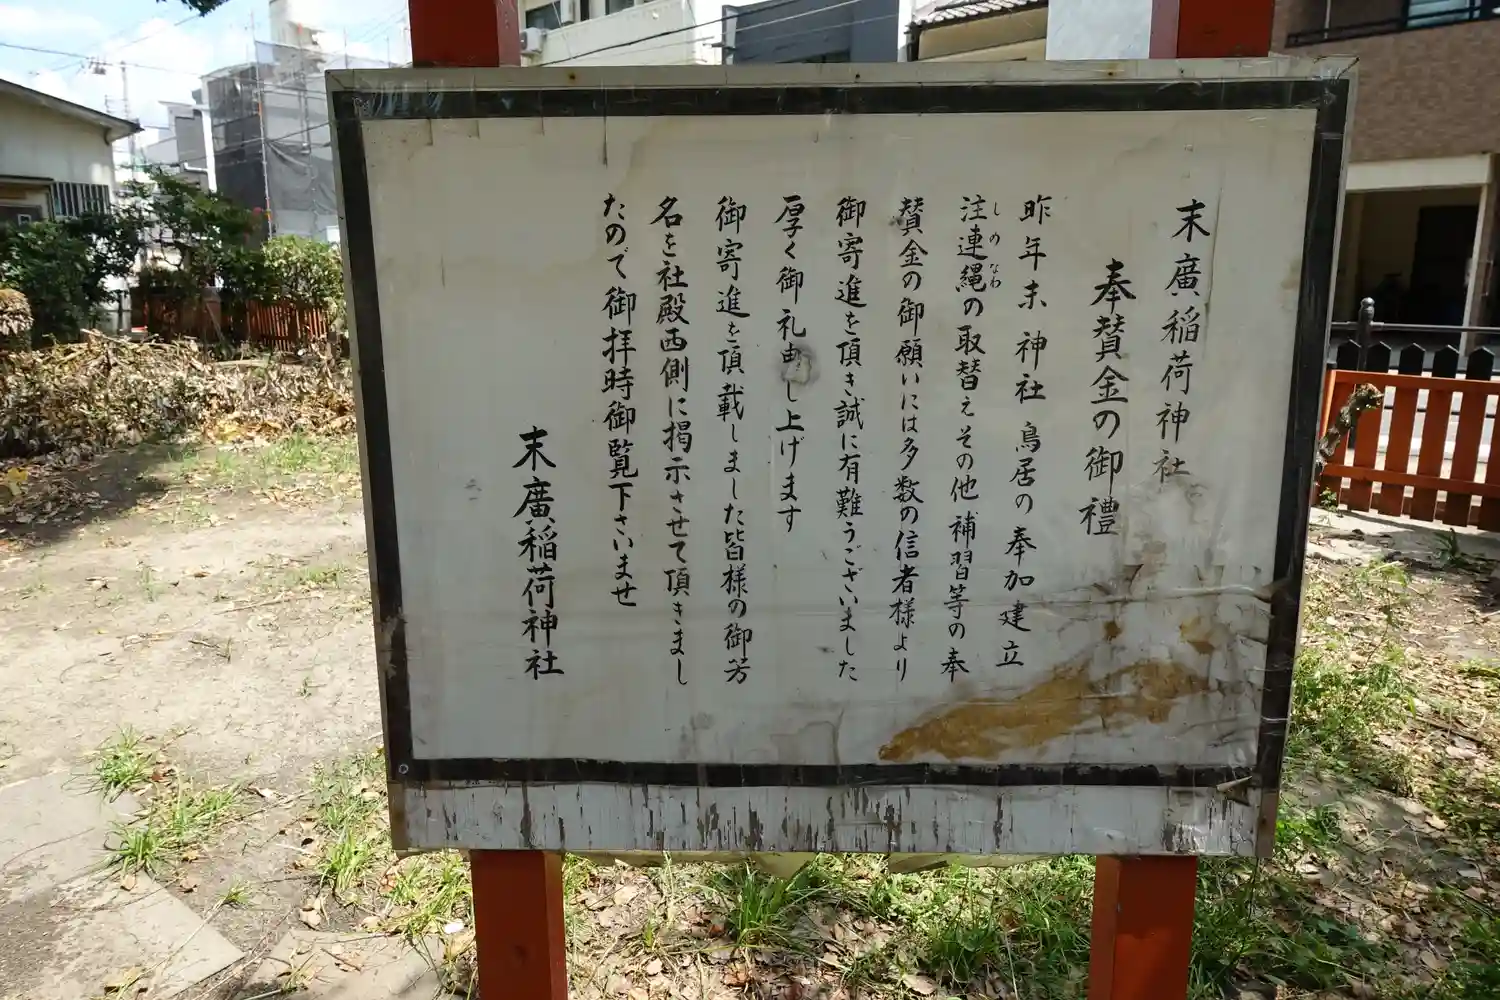 末廣稲荷神社
奉賛金の御禮
昨年末神社鳥居の奉加建立
注連縄の取替えその他補習等の奉
しめなわ
賛金の御願いには多数の信者様より
御寄進を頂き誠に有難うございました
厚く御礼申し上げます
御寄進を頂載しました皆様の御芳
名を社殿西側に掲示させて頂きまし
たので御拝時御覧下さいませ
末廣稲荷神社